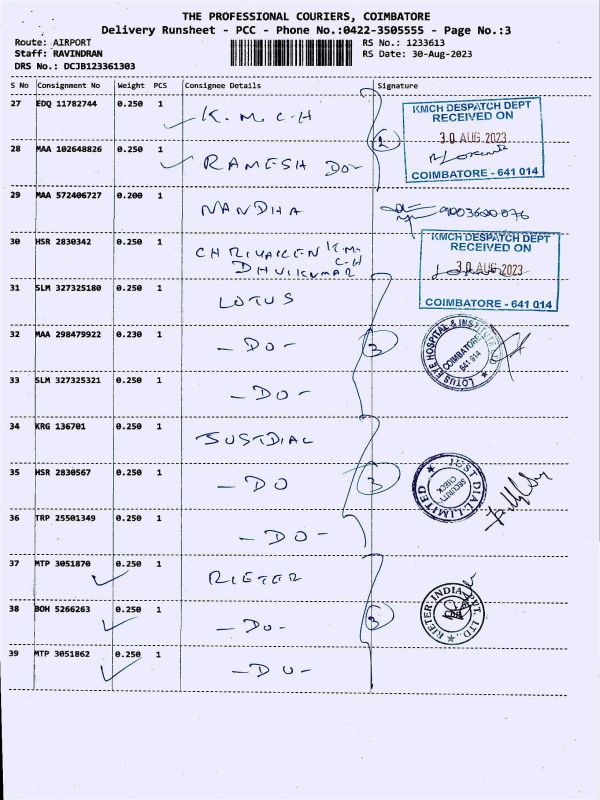 THE PROFESSIONAL COURIERS, COIMBATORE
Delivery Runsheet - PCC - Phone No.:0422-3505555 - Page No.:3
Route: AIRPORT
Staff: RAVINDRAN
DRS No.: DCJB123361303
RS No.: 1233613
RS Date: 30-Aug-2023
S No Consignment No Weight PCS Consignee Details Signature
27 EDQ 11782744 0.250 1 K. M. C. H
KMCH DESPATCH DEPT
RECEIVED ON
30 AUG 2023
COIMBATORE - 641 014
2
28 MAA 102648826 0.250 1 RAMESH DO-
29 MAA 572406727 0.200 1 NANDHA
30 HSR 2830342 0.250 1 K.M.
C-H
KMCH DESPATCH DEPT
RECEIVED ON
30 AUG 2023
COIMBATORE - 641 014
31 SLM 327325180 0.250 1 LOTUS
32 MAA 298479922 0.230 1 - DO -
3
LOTUS EYE HOSPITAL & INSTITUTE LTD
COIMBATORE
641 014
33 SLM 327325321 0.250 1 - DO -
34 KRG 136701 0.250 1 JUSTDIAL
35 HSR 2830567 0.250 1 - DO
3
JUST DIAL LIMITED
SECURITY
CHECK
36 TRP 25501349 0.250 1 - DO -
37 MTP 3051870 0.250 1 RIETER
38 BOH 5266263 0.250 1 - DO -
3
RIETER INDIA PVT. LTD.
39 MTP 3051862 0.250 1 - DO -